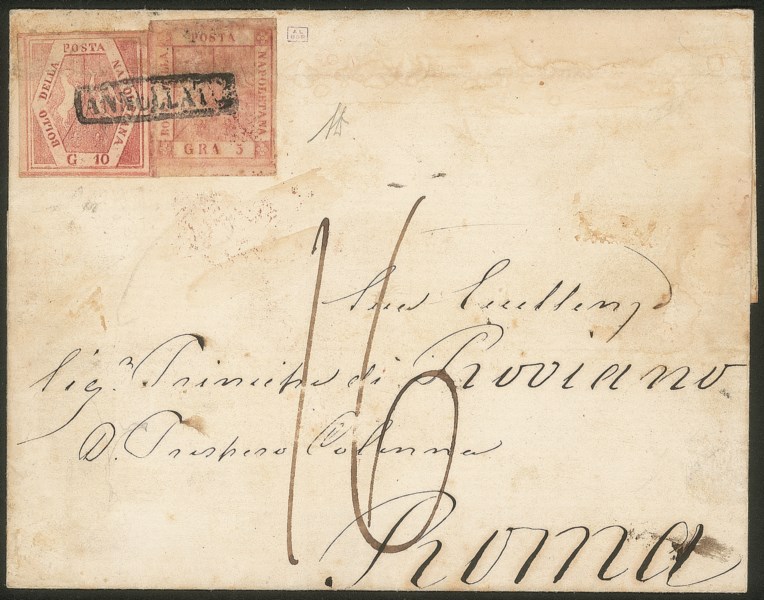 BOLLO DELLA POSTA NAPOLETANA
G 10
POSTA NAPOLETANA
GRA 5
ANNULLATO
16
Sua Eccellenza
Sig.r Principe di Roviano
D. Prospero Colonna
Roma